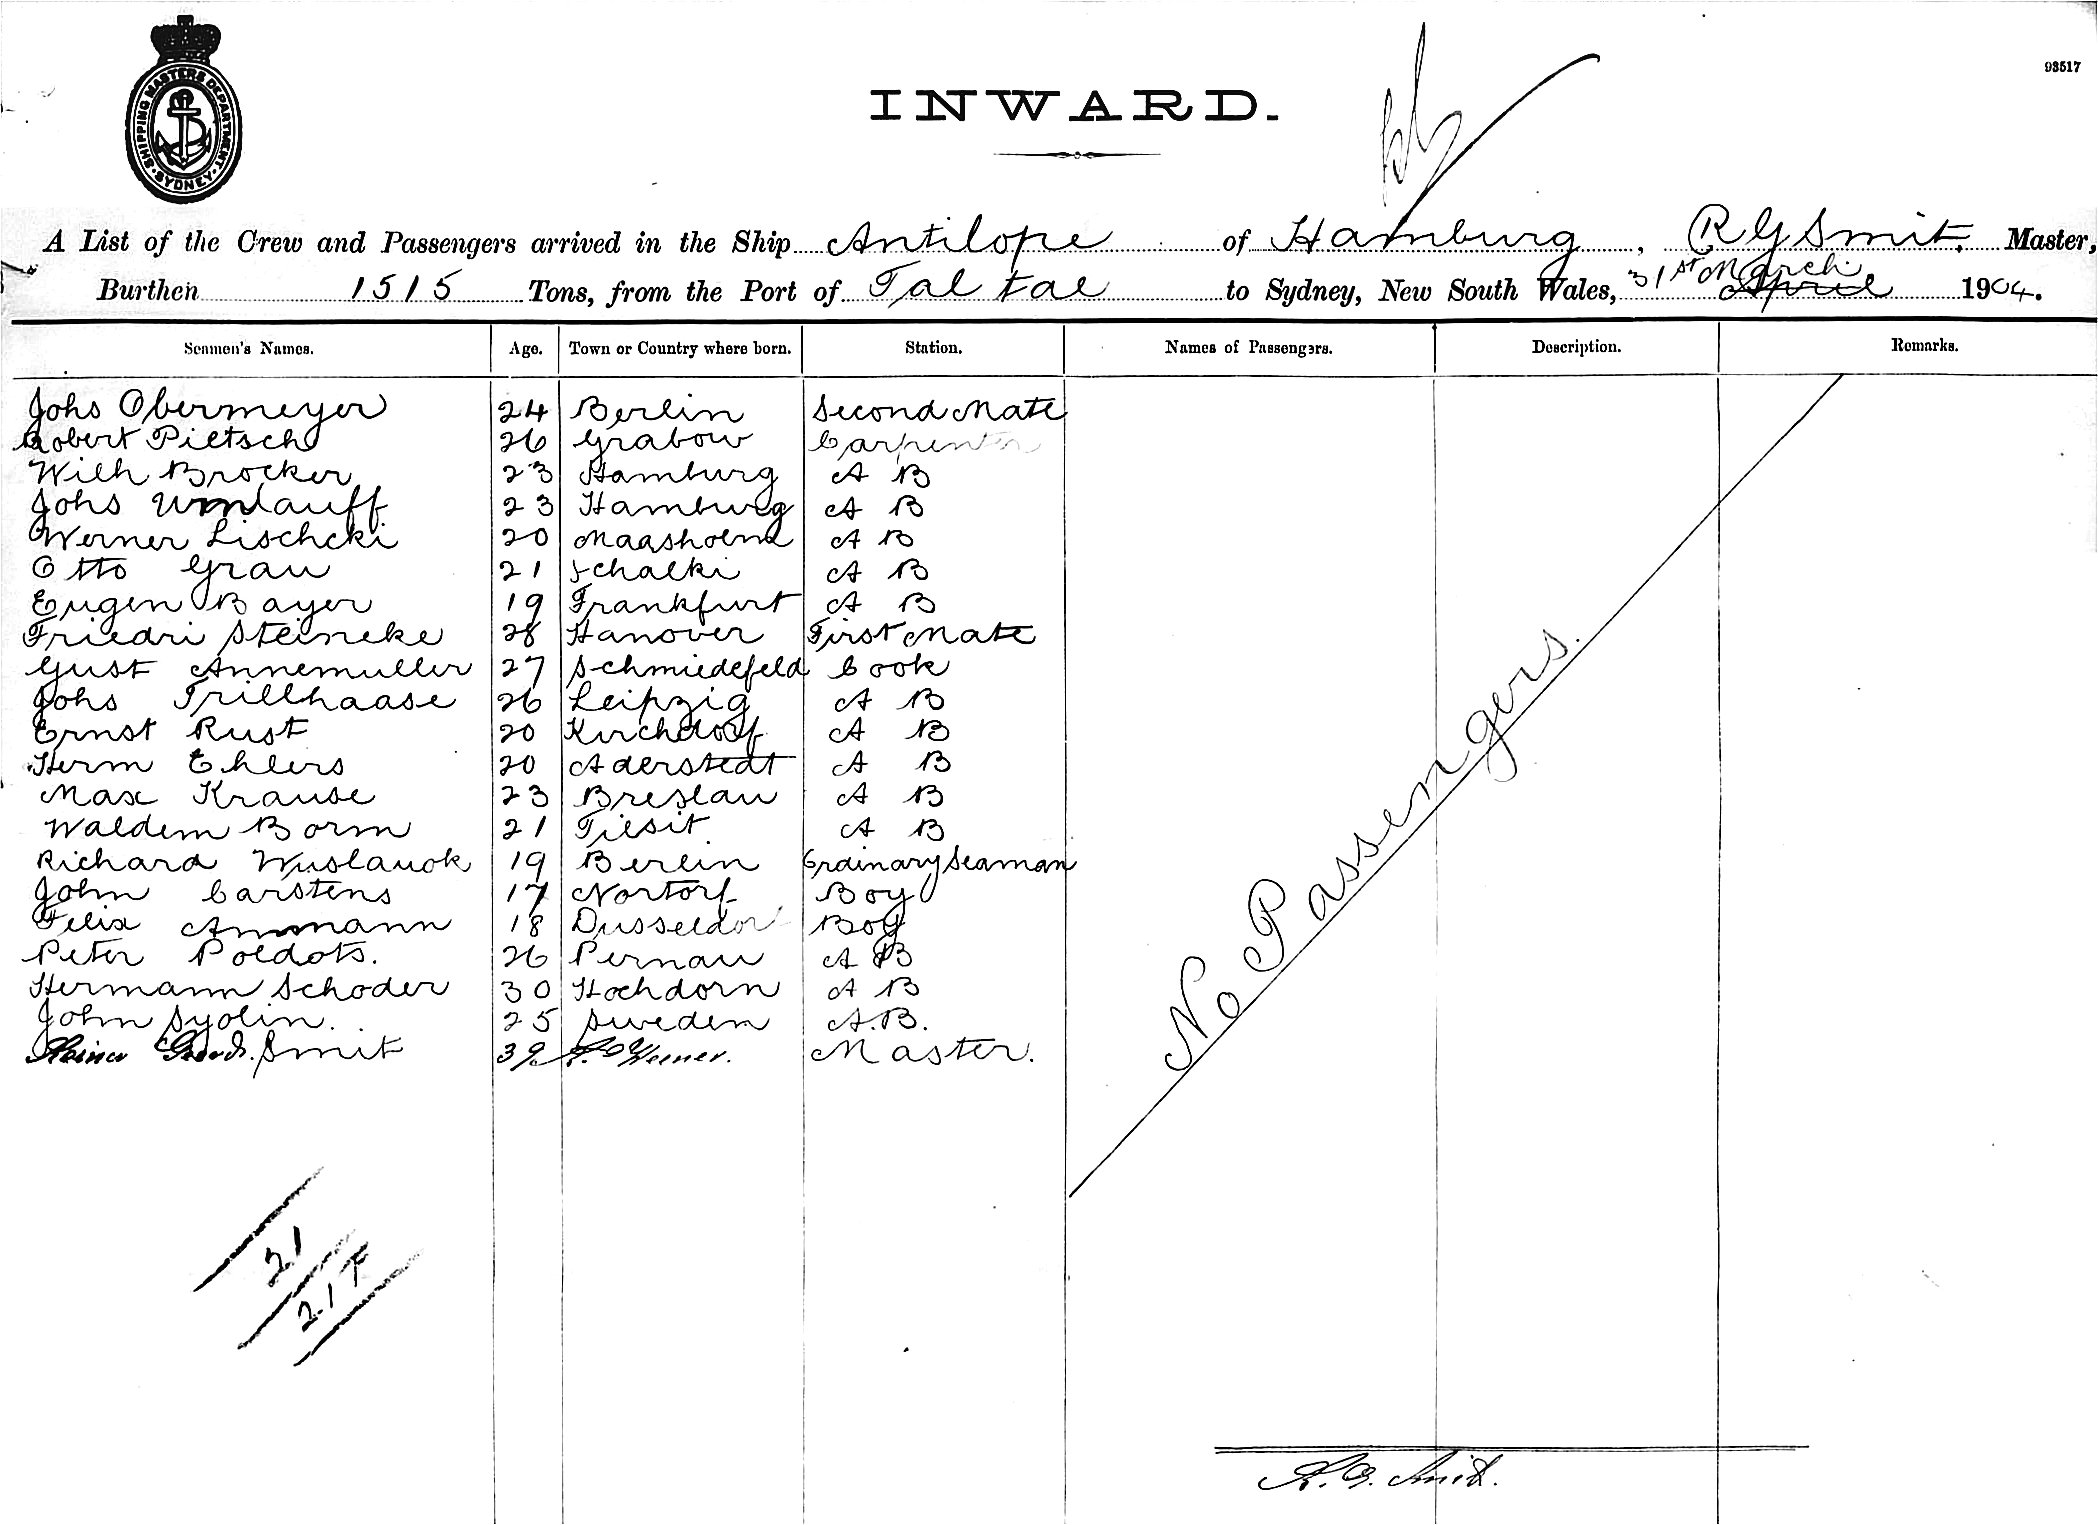 93517
SHIPPING MASTERS DEPARTMENT SYDNEY
INWARD.
A List of the Crew and Passengers arrived in the Ship Antilope of Hamburg, R G Smit. Master,
Burthen 1515 Tons, from the Port of Tal tal to Sydney, New South Wales, 31st March April 1904.
Seamen's Names. Age. Town or Country where born. Station. Names of Passengers. Description. Remarks.
Johs Obermeyer 24 Berlin Second Mate
Robert Pietsch 26 Grabow Carpenter
Wilh Brocker 23 Hamburg A B
Johs Umlauff 23 Hamburg A B
Werner Lischcki 20 Maasholm A B
Otto Grau 21 Schalki A B
Eugen Bayer 19 Frankfurt A B
Friedri Steineke 28 Hanover First Mate
Gust Annemuller 27 Schmiedefeld Cook
Johs Trillhaase 26 Leipzig A B
Ernst Rust 20 Kirchdorf A B
Herm Ehlers 20 Aderstedt A B
Max Krause 23 Breslau A B
Waldem Borm 21 Tilsit A B
Richard Wuslauok 19 Berlin Ordinary Seaman
John Carstens 17 Nortorf Boy
Felix Ammann 18 Dusseldor Boy
Peter Poldots. 26 Pernau A B
Hermann Schoder 30 Hochdorn A B
John Syolin. 25 Sweden A.B.
Smit 39 Master.
No Passengers.
21
21 F
R. G. Smit.